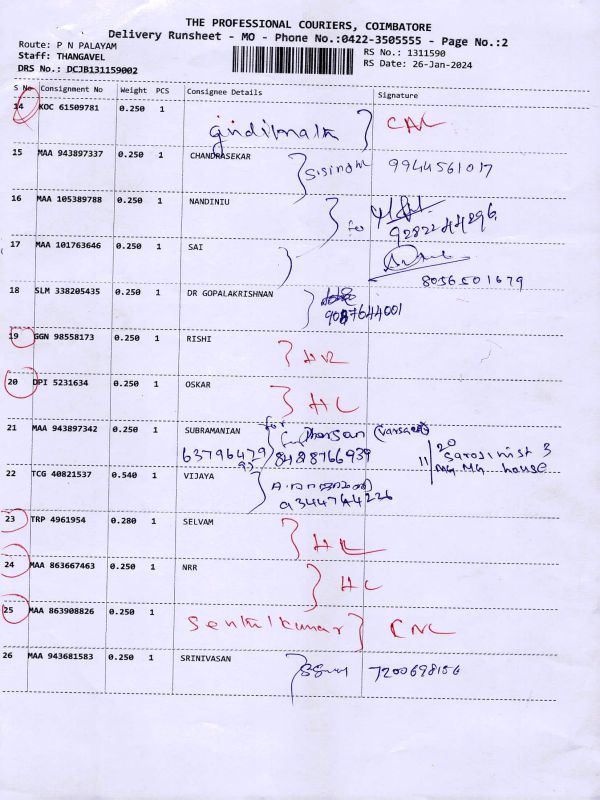 THE PROFESSIONAL COURIERS, COIMBATORE
Delivery Runsheet - MO - Phone No.:0422-3505555 - Page No.:2
Route: P N PALAYAM
Staff: THANGAVEL
DRS No.: DCJB131159002
RS No.: 1311590
RS Date: 26-Jan-2024
S No Consignment No Weight PCS Consignee Details Signature
14 KOC 61509781 0.250 1
15 MAA 943897337 0.250 1 CHANDRASEKAR 9944561017
16 MAA 105389788 0.250 1 NANDINIU for
9282244296
17 MAA 101763646 0.250 1 SAI
8056501679
18 SLM 338205435 0.250 1 DR GOPALAKRISHNAN
9087644001
19 GGN 98558173 0.250 1 RISHI
20 DPI 5231634 0.250 1 OSKAR HC
21 MAA 943897342 0.250 1 SUBRAMANIAN for
8428766939
house
22 TCG 40821537 0.540 1 VIJAYA
9344744226
23 TRP 4961954 0.280 1 SELVAM
24 MAA 863667463 0.250 1 NRR HC
25 MAA 863908826 0.250 1 Senthilkumar CNC
26 MAA 943681583 0.250 1 SRINIVASAN 7200698156